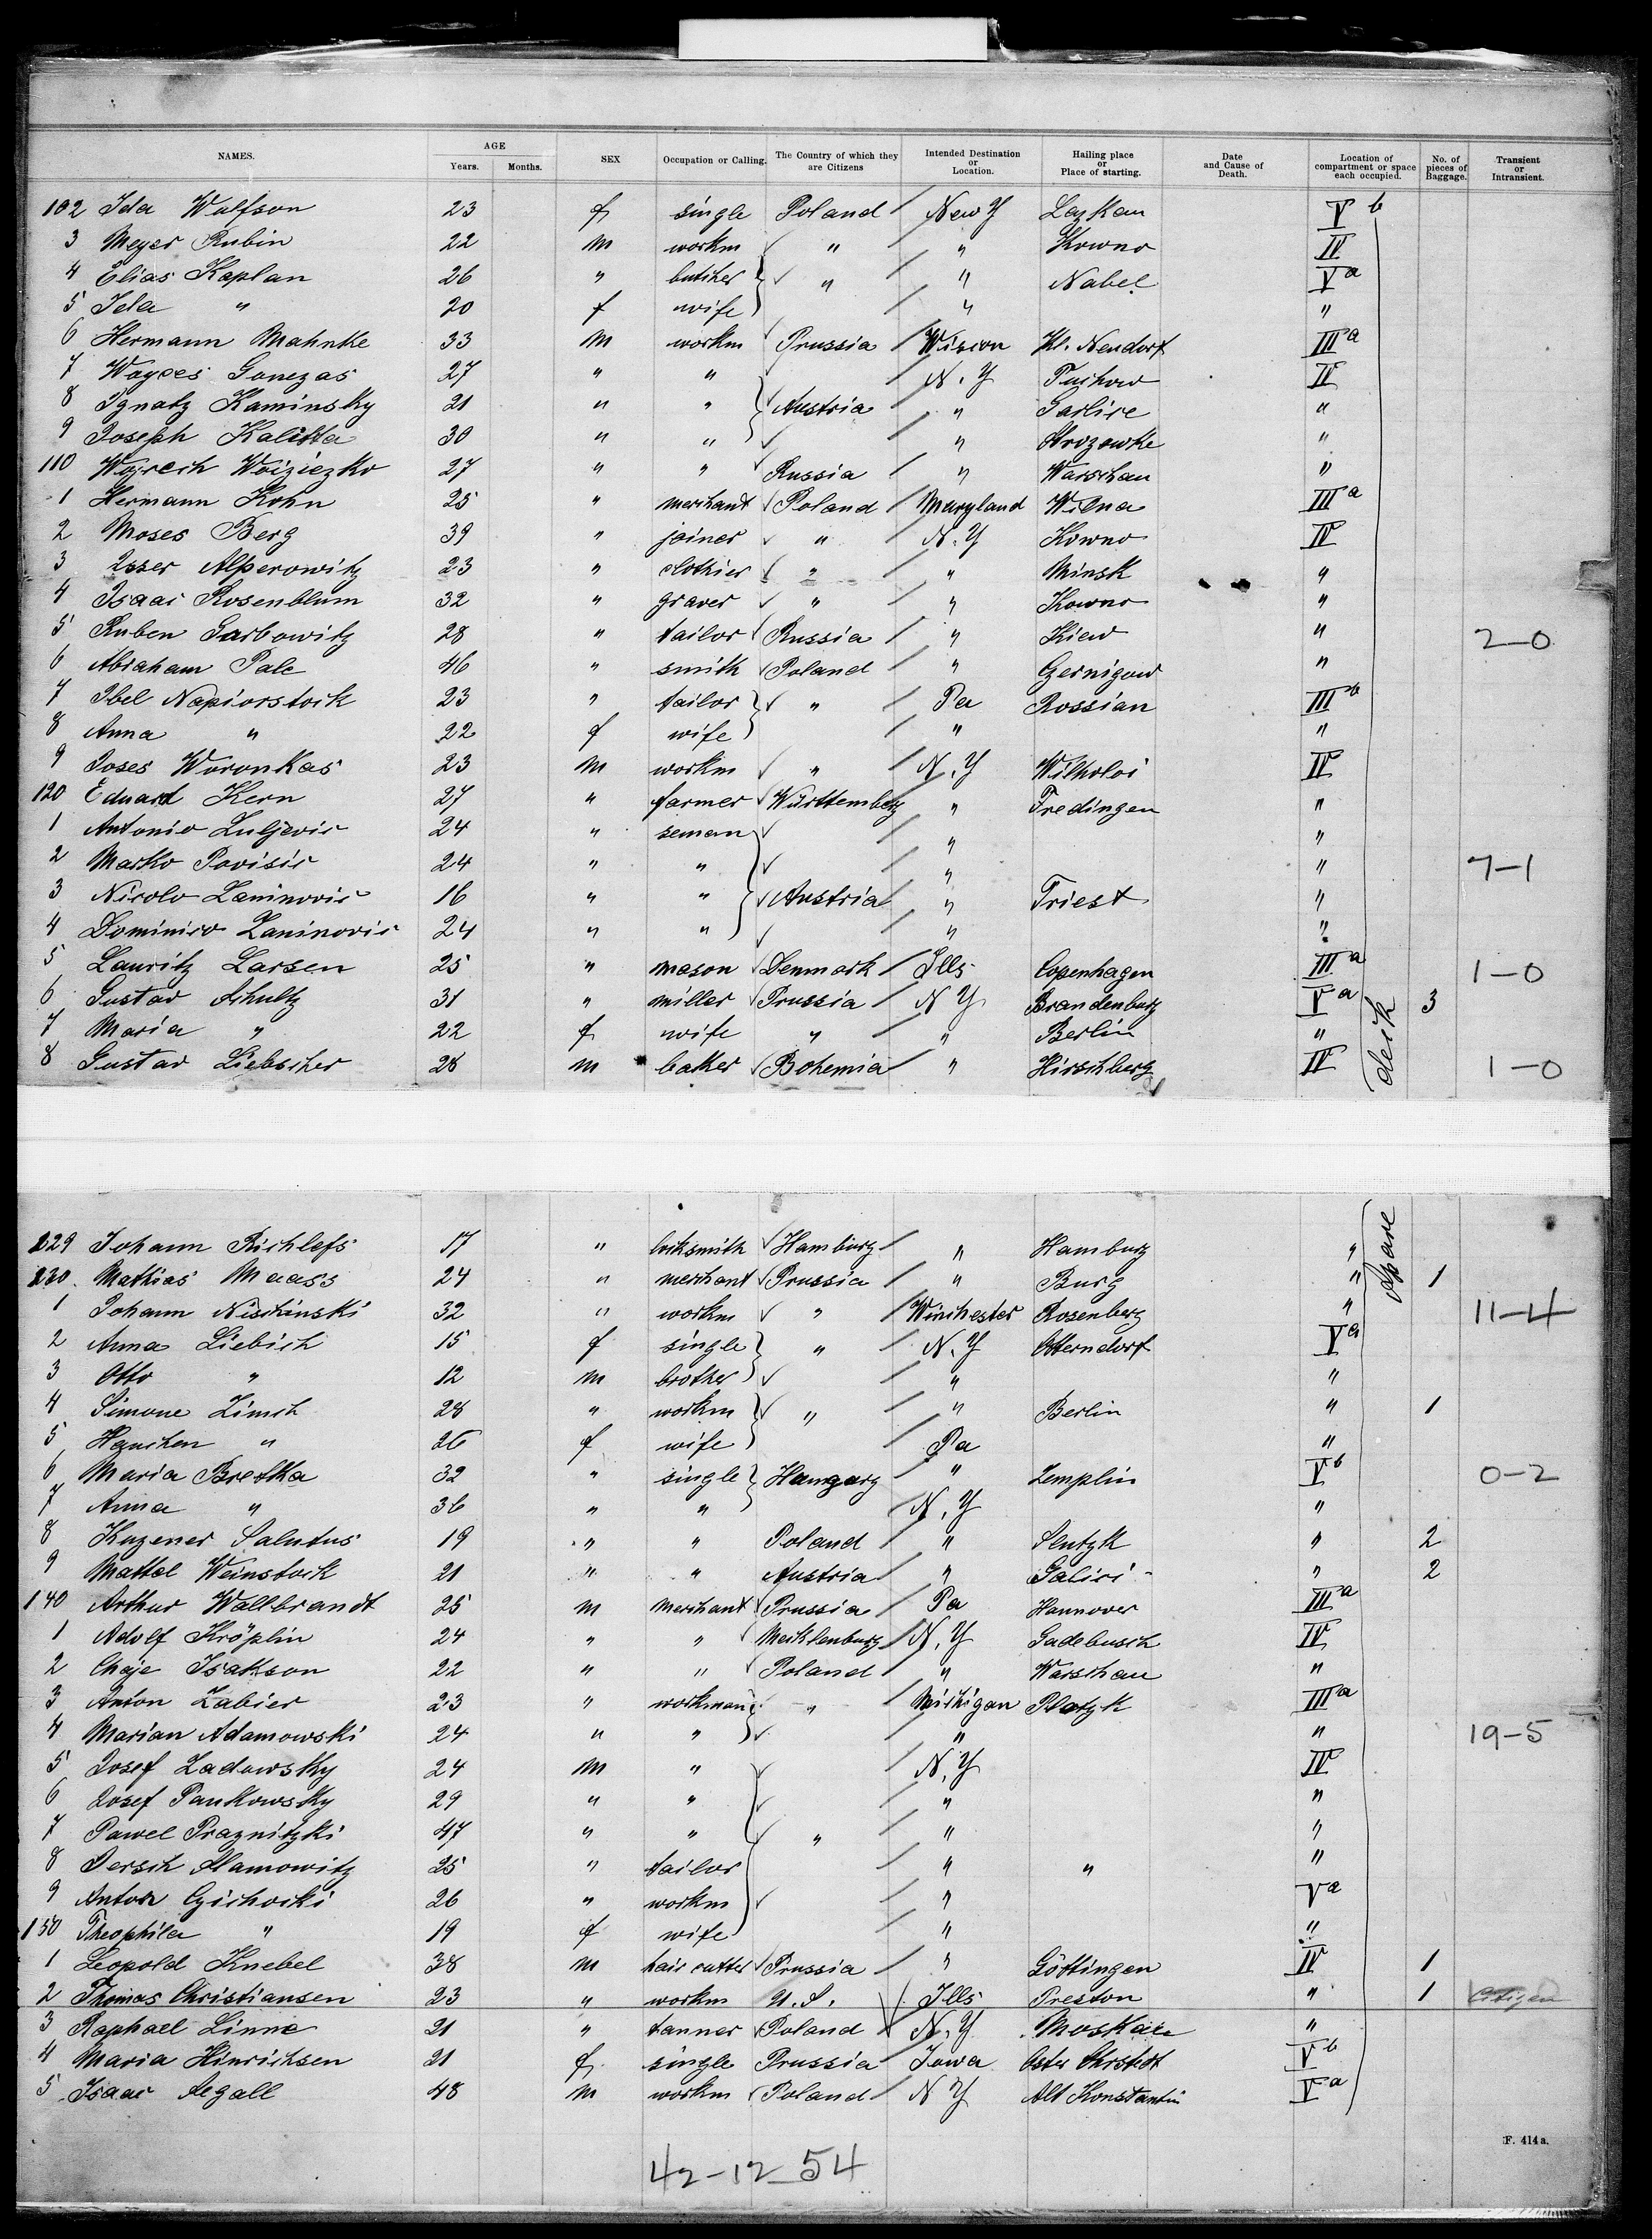 NAMES. AGE Years. Months. SEX Occupation or Calling. The Country of which they are Citizens Intended Destination or Location. Hailing place or Place of starting. Date and Cause of Death. Location of compartment or space each occupied. No. of pieces of Baggage. Transient or Intransient.
102 Ida Wolfson 23 f single Poland / New Y Lazkau V b
3 Meyer Rubin 22 m workm " / " Kowno IV
4 Elias Kaplan 26 " butcher " / " Nabel V a
5 Ida " 20 f wife / " "
6 Hermann Mahnke 33 m workm Prussia / Wiscon Kl. Neudorf III a
7 Woyces Gonezas 27 " " / N. Y Tuchow IV
8 Ignatz Kaminsky 21 " " Austria / " Garlice "
9 Joseph Kalitta 30 " " / " Strozowke "
110 Wojcech Woiziezko 27 " " Russia / " Warschau "
1 Hermann Kohn 25 " merchant Poland / Maryland Wilna III a
2 Moses Berg 39 " joiner " / N. Y Kowno IV
3 Isser Alperowitz 23 " clothier " / " Minsk "
4 Isaac Rosenblum 32 " graver " / " Kowno "
5 Ruben Garbowitz 28 " tailor Russia / " Kiew " 2-0
6 Abraham Pale 46 " smith Poland / " Gernigow "
7 Ibel Napiorstock 23 " tailor " / Pa Rossian III b
8 Anna " 22 f wife / " "
9 Joses Woronkas 23 m workm " / N. Y Wilholoi IV
120 Eduard Kern 27 " farmer Württemberg / " Fredingen "
1 Antonio Luljevic 24 " seman / " "
2 Marko Povisic 24 " " / " " 7-1
3 Nicolo Zaninovic 16 " " Austria / " Triest "
4 Dominico Zaninovic 24 " " / " "
5 Lauritz Larsen 25 " mason Denmark / Ills Copenhagen III a 1-0
6 Gustav Schultz 31 " miller Prussia / N Y Brandenburg V a 3
7 Maria " 22 f wife " / " Berlin "
8 Gustav Liebscher 28 m baker Bohemia / " Hirschberg IV deck 1-0
129 Johann Richlefs 17 " locksmith Hamburg / " Hamburg " space
130 Mathias Maass 24 " merchant Prussia / " Burg " 1
1 Johann Nischinski 32 " workm " / Winchester Rosenberg " 11-4
2 Anna Liebich 15 f single " / N. Y Otterndorf V a
3 Otto " 12 m brother / " "
4 Simone Zimch 28 " workm " / " Berlin " 1
5 Hanchen " 26 f wife / Pa "
6 Maria Bretka 32 " single Hungary / " Zemplin V b 0-2
7 Anna " 36 " " / N. Y "
8 Kuzener Salutus 19 " " Poland / " Slutzk " 2
9 Mattel Weinstock 21 " " Austria / " Galici " 2
140 Arthur Wallbrandt 25 m merchant Prussia / Pa Hannover III a
1 Adolf Kröplin 24 " " Mecklenburg / N. Y Gadebusch IV
2 Chaje Isakson 22 " " Poland / " Warschau "
3 Anton Zabier 23 " workman " / Michigan Plotzk III a
4 Marian Adamowski 24 " " / " " 19-5
5 Josef Zadowsky 24 m " / N. Y IV
6 Josef Pankowsky 29 " " / " "
7 Pawel Praznitzki 47 " " " / " "
8 Dersch Alamowitz 25 " tailor / " " "
9 Anton Czichocki 26 " workm / " V a
150 Theophila " 19 f wife / " "
1 Leopold Knebel 38 m hair cutter Prussia / " Göttingen IV 1
2 Thomas Christiansen 23 " workm U. S. Ills Preston " 1 Citizen
3 Raphael Linne 21 " tanner Poland / N. Y Moskau "
4 Maria Hinrichsen 21 f single Prussia / Iowa Oster Ohrstedt V b
5 Isaac Segall 48 m workm Poland / N Y Alt Konstantin V a
F. 414 a.
42-12 54